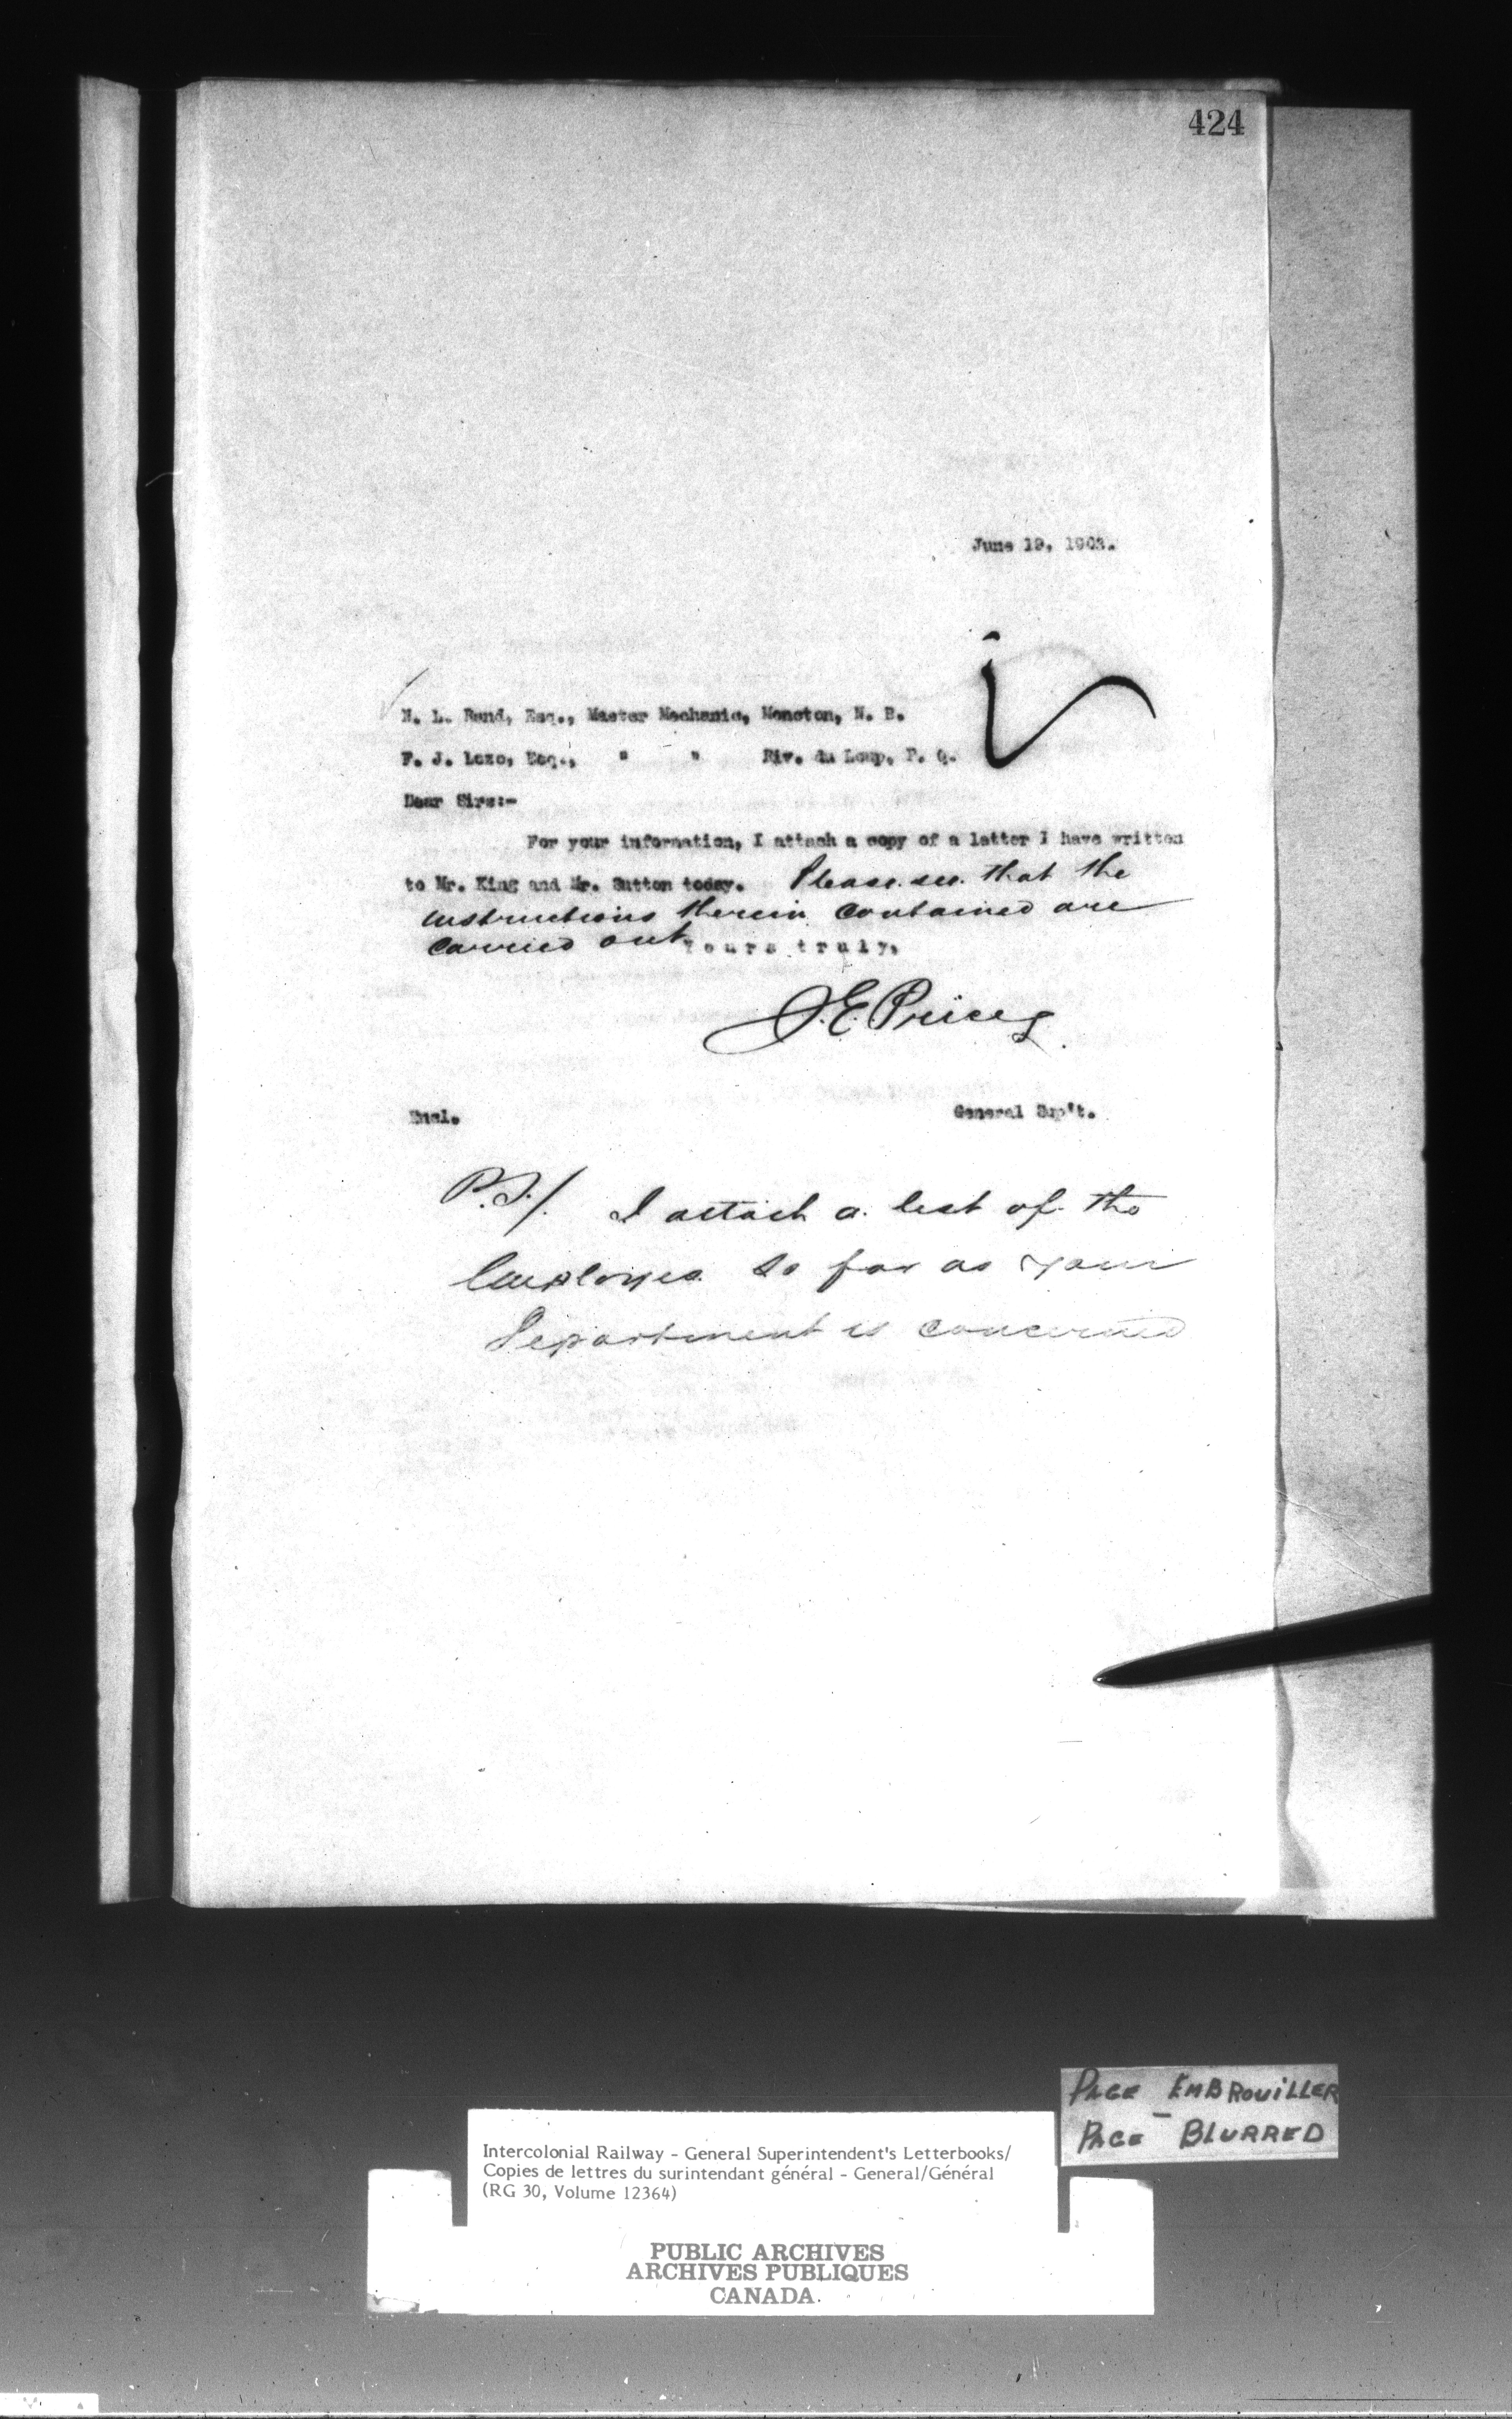 424
June 19, 1903.
N. L. Rand, Esq., Master Mechanic, Moncton, N. B.
F. J. Lozo, Esq., " " Riv. du Loup, P. Q.
Dear Sirs:-
For your information, I attach a copy of a letter I have written
to Mr. King and Mr. Sutton today. Please see that the
instructions therein contained are
carried out
Yours truly,
J.E. Price
Encl. General Sup't.
P.S/. I attach a list of the
Employes so far as your
Department is concerned
PAGE EMBROUILLER
PAGE - BLURRED
Intercolonial Railway - General Superintendent's Letterbooks/
Copies de lettres du surintendant général - General/Général
(RG 30, Volume 12364)
PUBLIC ARCHIVES
ARCHIVES PUBLIQUES
CANADA